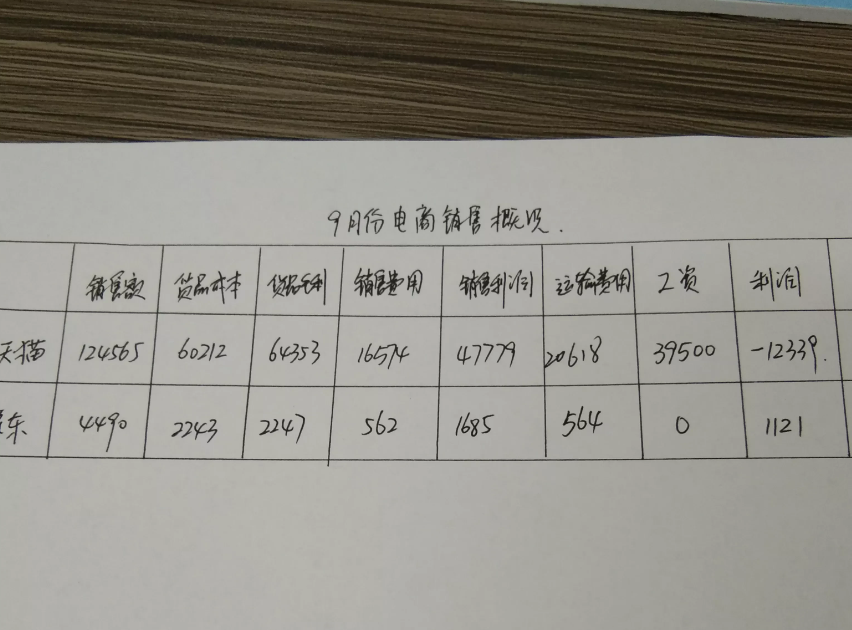 9月份电商销售概况.
销售额 货品成本 货品毛利 销售费用 销售利润 运输费用 工资 利润
天猫 124565 60212 64353 16574 47779 20618 39500 -12339.
京东 4490 2243 2247 562 1685 564 0 1121